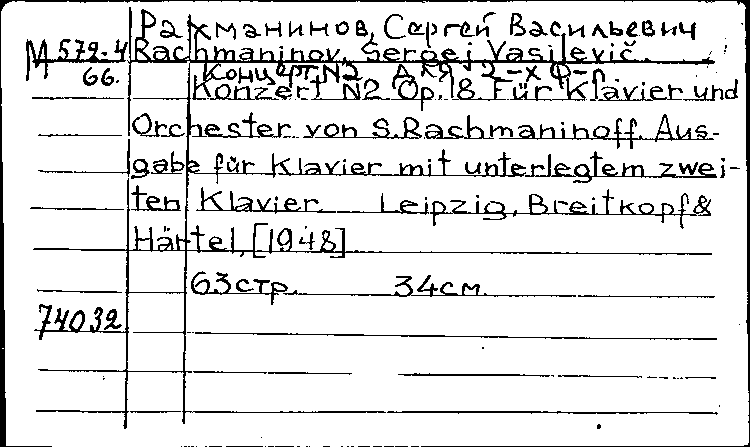 Рахманинов, Сергей Васильевич
М 572-4 Rachmaninov, Sergej Vasilevič.
66. Концерт N2 для 2-х ф-п.
Konzert N2 Op.18 Für Klavier und
Orchester von S.Rachmaninoff. Aus-
gabe für Klavier mit unterlegtem zwei-
ten Klavier Leipzig, Breitkopf &
Härtel, [1948]
63стр. 34см.
74032